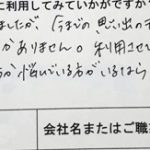 に利用してみていかがですか
ましたが、「今までの思い出の
かありません。利用させ
方が悩んでいる方がいるなら
会社名またはご職